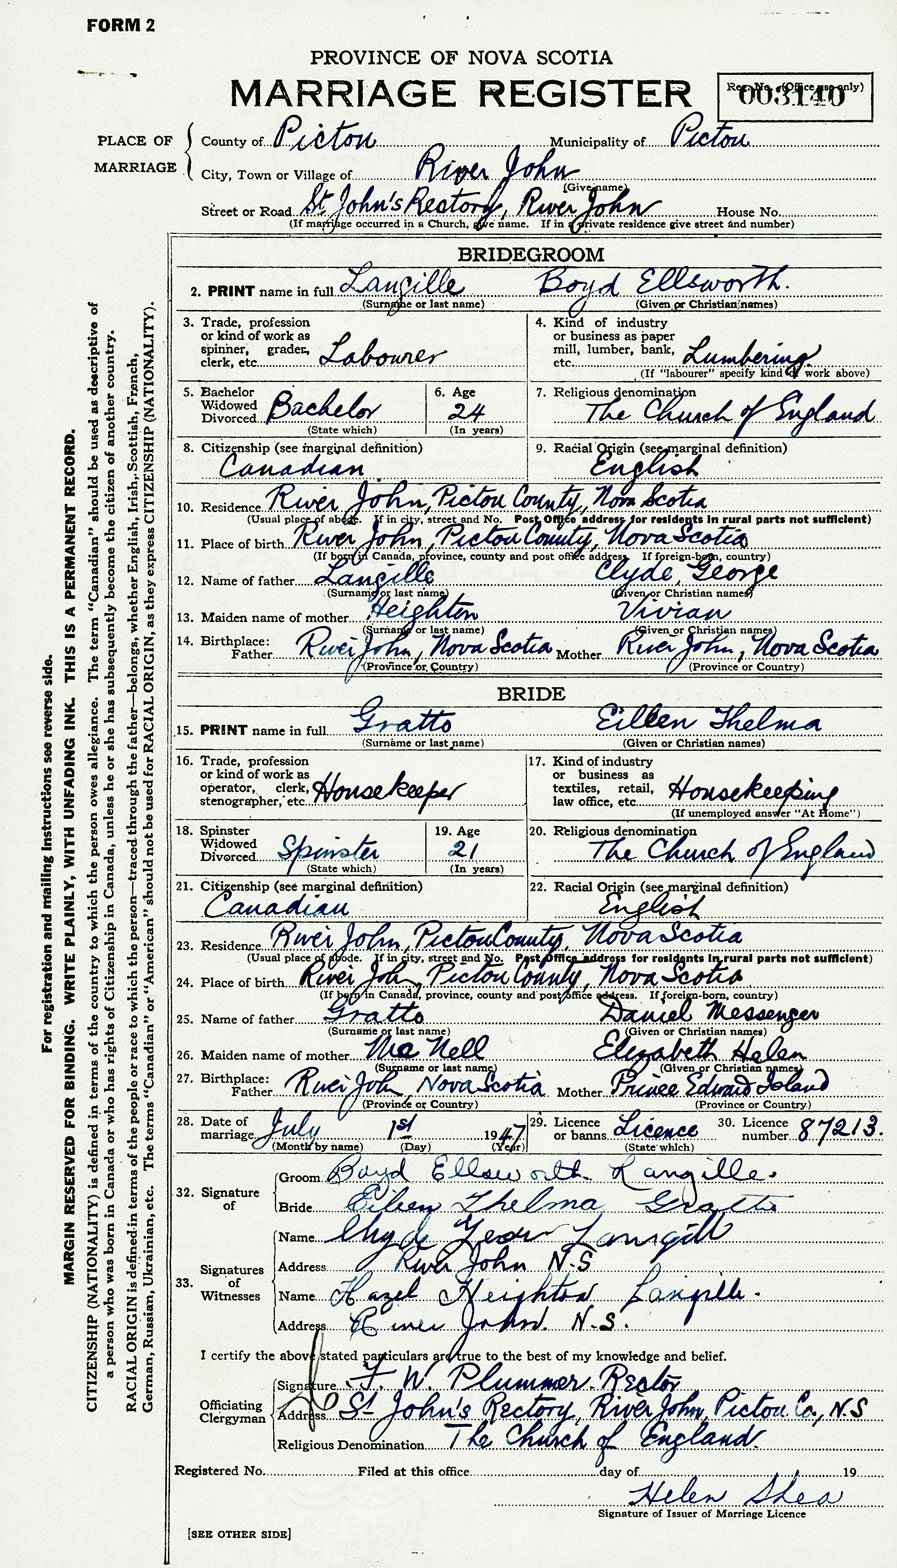 FORM 2
PROVINCE OF NOVA SCOTIA
MARRIAGE REGISTER
Reg. No. (Office use only)
003140
PLACE OF MARRIAGE
County of Pictou Municipality of Pictou
City, Town or Village of River John
(Give name)
Street or Road St John's Rectory, River John House No.
(If marriage occurred in a Church, give name. If in a private residence give street and number)
BRIDEGROOM
2. PRINT name in full Langille Boyd Ellsworth.
(Surname or last name) (Given or Christian names)
3. Trade, profession or kind of work as spinner, grader, clerk, etc. Labourer
4. Kind of industry or business as paper mill, lumber, bank, etc. Lumbering
(If "labourer" specify kind of work above)
5. Bachelor Widowed Divorced Bachelor
(State which)
6. Age 24
(In years)
7. Religious denomination
The Church of England
8. Citizenship (see marginal definition)
Canadian
9. Racial Origin (see marginal definition)
English
10. Residence River John, Pictou County, Nova Scotia
(Usual place of abode. If in city, street and No. Post Office address for residents in rural parts not sufficient)
11. Place of birth River John, Pictou County, Nova Scotia
(If born in Canada, province, county and post office address. If foreign-born, country)
12. Name of father Langille Clyde, George
(Surname or last name) (Given or Christian names)
13. Maiden name of mother Heighton Vivian
(Surname or last name) (Given or Christian names)
14. Birthplace: Father River John, Nova Scotia Mother River John, Nova Scotia
(Province or Country) (Province or Country)
BRIDE
15. PRINT name in full Gratto Eileen Thelma
(Surname or last name) (Given or Christian names)
16. Trade, profession or kind of work as operator, clerk, stenographer, etc. Housekeeper
17. Kind of industry or business as textiles, retail, law office, etc. Housekeeping
(If unemployed answer "At Home")
18. Spinster Widowed Divorced Spinster
(State which)
19. Age 21
(In years)
20. Religious denomination
The Church of England
21. Citizenship (see marginal definition)
Canadian
22. Racial Origin (see marginal definition)
English
23. Residence River John, Pictou County, Nova Scotia
(Usual place of abode. If in city, street and No. Post Office address for residents in rural parts not sufficient)
24. Place of birth River John, Pictou County, Nova Scotia
(If born in Canada, province, county and post office address. If foreign-born, country)
25. Name of father Gratto Daniel Messenger
(Surname or last name) (Given or Christian names)
26. Maiden name of mother Mc Nell Elizabeth Helen
(Surname or last name) (Given or Christian names)
27. Birthplace: Father River John Nova Scotia Mother Prince Edward Island
(Province or Country) (Province or Country)
28. Date of marriage July 1st 1947
(Month by name) (Day) (Year)
29. Licence or banns Licence
(State which)
30. Licence number 87213.
32. Signature of
Groom Boyd Ellsworth Langille.
Bride Eileen Thelma Gratto
33. Signatures of Witnesses
Name Clyde George Langill
Address River John N.S
Name Hazel Heighton Langille.
Address River John. N.S.
I certify the above stated particulars are true to the best of my knowledge and belief.
Officiating Clergyman
Signature F. W. Plummer. Rector
Address St John's Rectory, River John, Pictou Co., N.S
Religious Denomination The Church of England.
Registered No. Filed at this office day of 19
Helen Shea
Signature of Issuer of Marriage Licence
[SEE OTHER SIDE]
For registration and mailing instructions see reverse side.
MARGIN RESERVED FOR BINDING. WRITE PLAINLY, WITH UNFADING INK. THIS IS A PERMANENT RECORD.
CITIZENSHIP (NATIONALITY) is defined in terms of the country to which the person owes allegiance. The term "Canadian" should be used as descriptive of
a person who was born in Canada or who has rights of Citizenship in Canada, unless he or she has subsequently become the citizen of another country.
RACIAL ORIGIN is defined in terms of the people or race to which the person—traced through the father—belongs, whether English, Irish, Scottish, French,
German, Russian, Ukrainian, etc. The terms "Canadian" or "American" should not be used for RACIAL ORIGIN, as they express CITIZENSHIP (NATIONALITY).